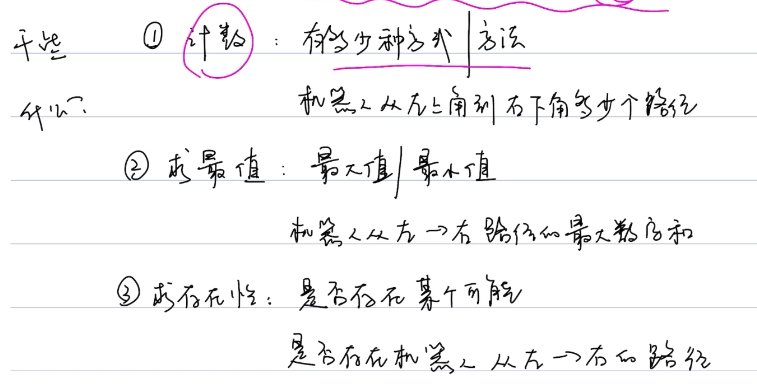 干些 ① 计数：有多少种方式|方法
什么？ 机器人从左上角到右下角多少个路径
② 求最值：最大值|最小值
机器人从左→右路径的最大数字和
③ 求存在性：是否存在某个可能
是否存在机器人从左→右的路径